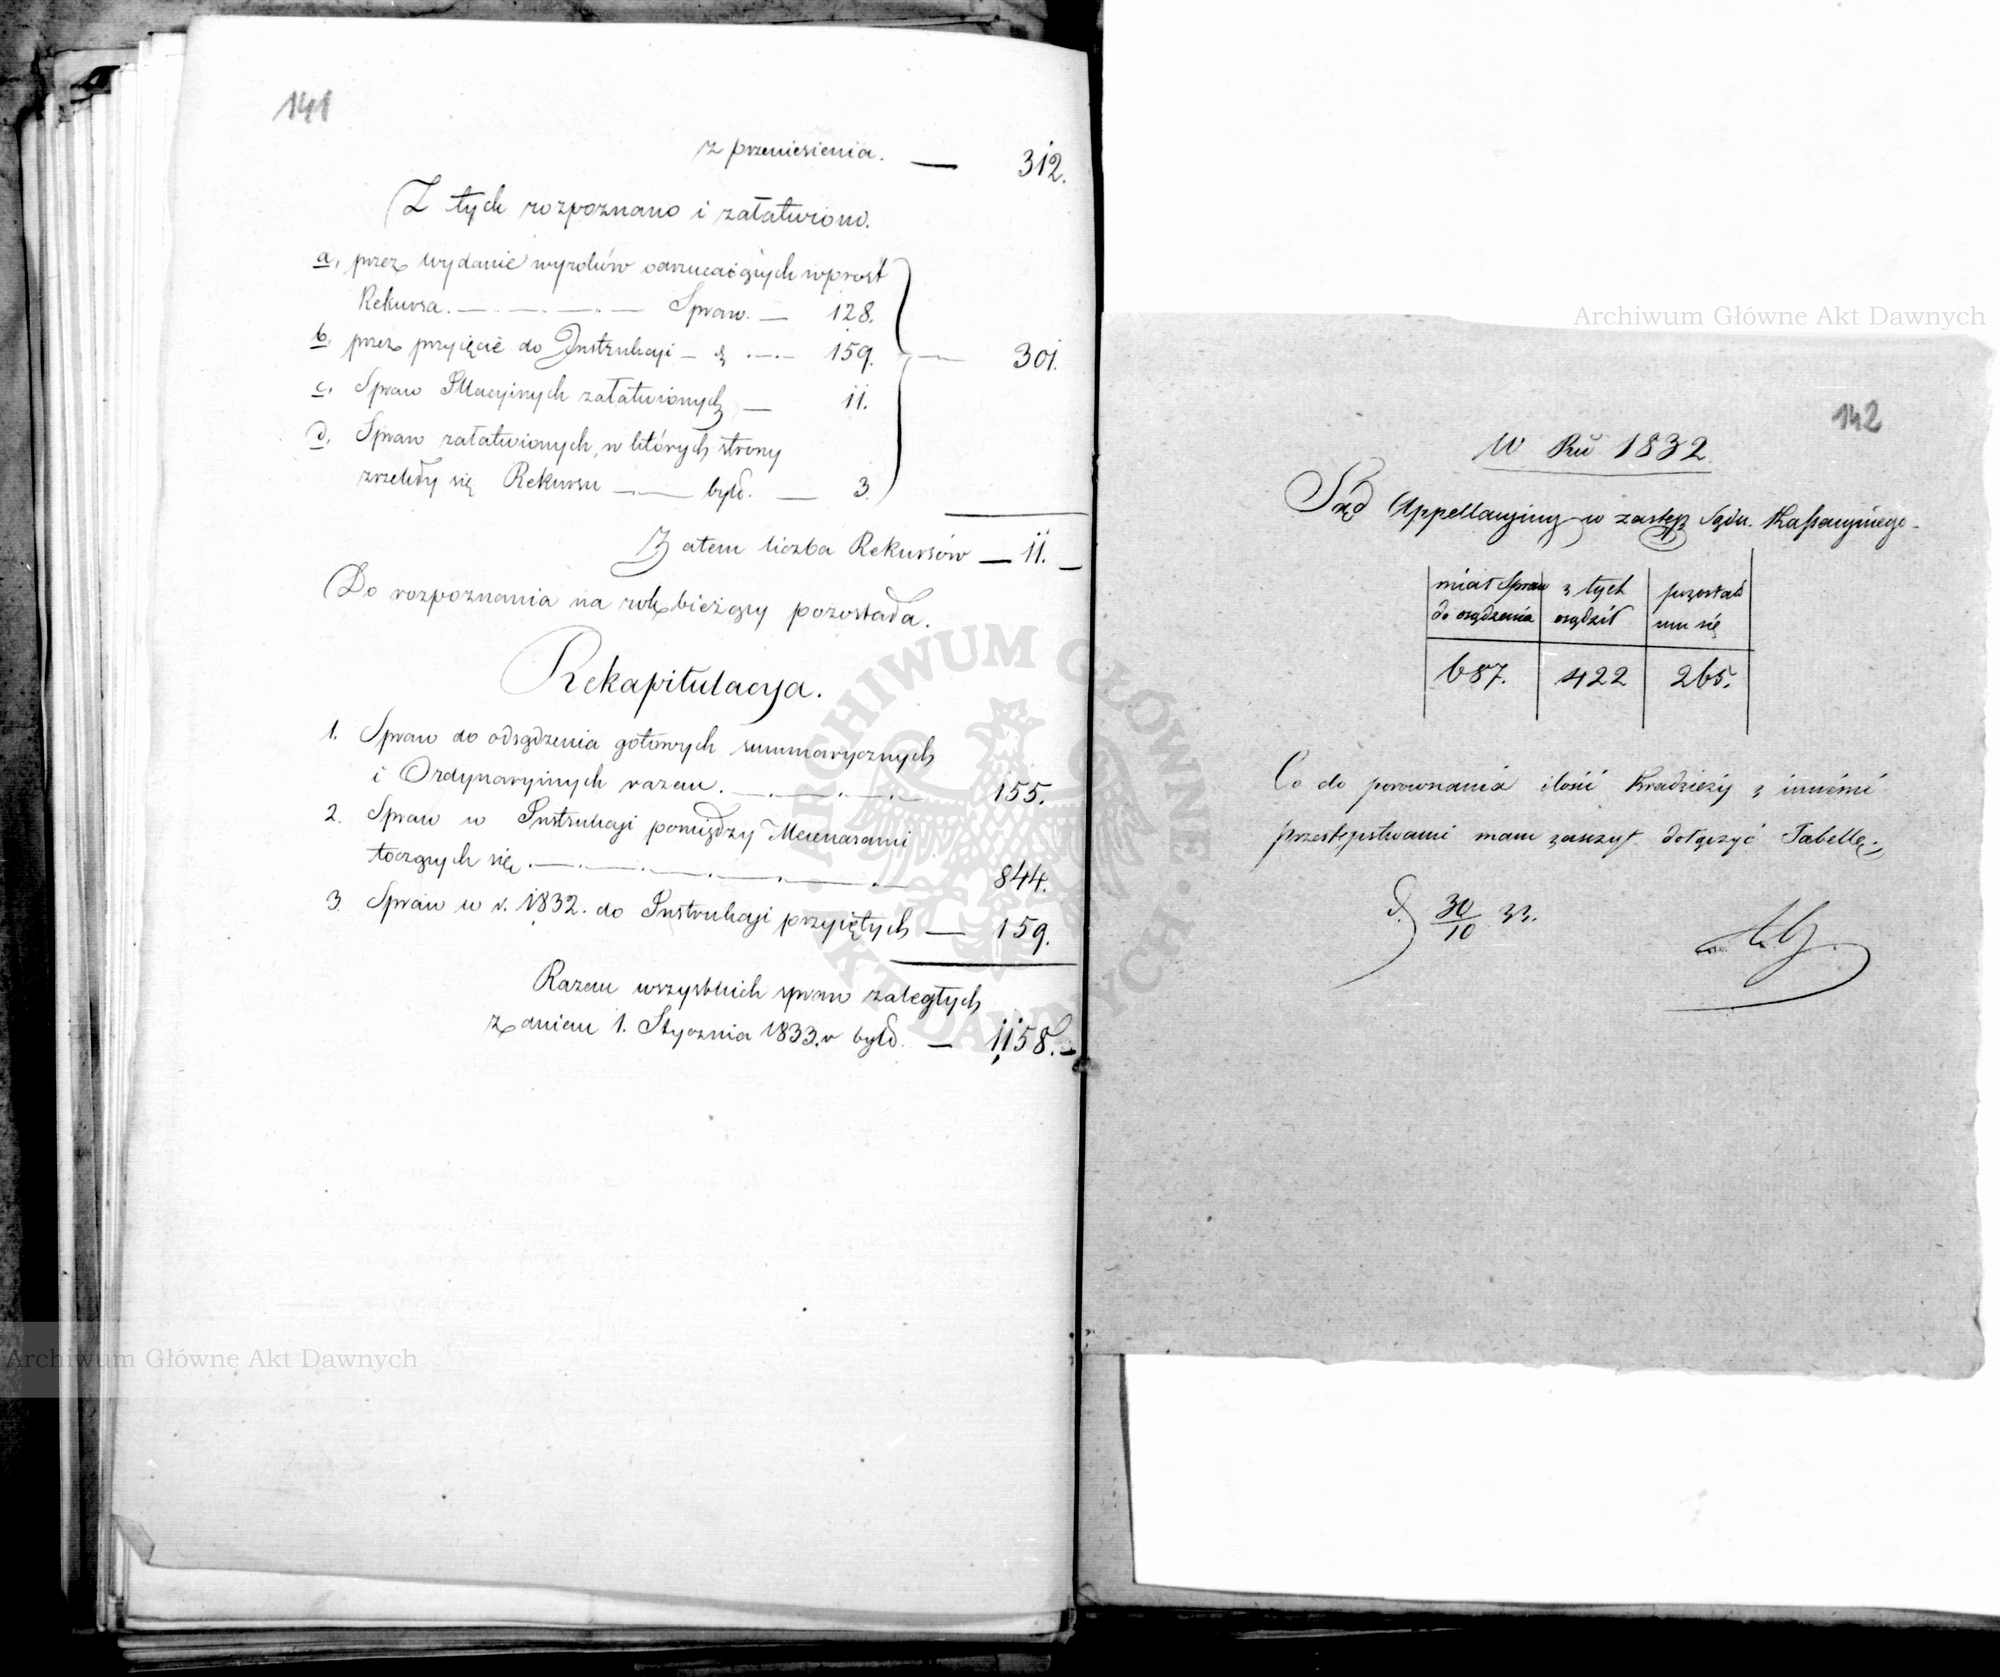 141
z przeniesienia. — 312.
Z tych rozpoznano i załatwiono.
a, przez wydanie wyroków odrzucaiących wprost
Rekursa. — Spraw. — 128.
b, przez przyięcie do Instrukcji — „ — 159. — 301.
c, Spraw Illacyinych załatwionych — 11.
d, Spraw załatwionych, w których strony
zrzekły się Rekursu — było. — 3.
Zatem liczba Rekursów — 11. —
Do rozpoznania na rok bieżący pozostała.
Rekapitulacya.
1. Spraw do odsądzenia gotowych summarycznych
i Ordynaryinych razem. — 155.
2. Spraw w Instrukcji pomiędzy Mecenasami
toczących się. — 844.
3. Spraw w r. 1832. do Instrukcji przyiętych — 159.
Razem wszystkich spraw zaległych
z dniem 1. Stycznia 1833. r było. — 1158. —
142
W Ru 1832
Sąd Appellacyiny w zastęp. Sądu Kassacyinego
miał Spraw z tych pozostało
do osądzenia osądził mu się
687. 422 265.
Co do porównania ilości Kradzieży z innémi
przestępstwami mam zaszczyt dołączyć Tabellę.
d. 30/10 33.
ARCHIWUM GŁÓWNE · AKT DAWNYCH ·
Archiwum Główne Akt Dawnych
Archiwum Główne Akt Dawnych